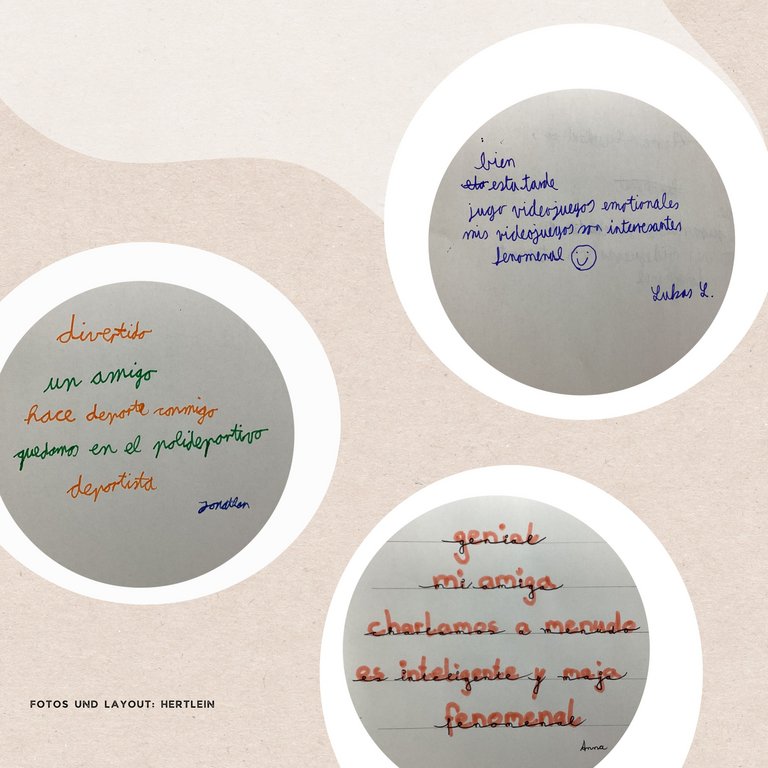 bien
esta tarde
jugo videojuegos emotionales
mis videojuegos son interesantes
fenomenal
Lukas L.
divertido
un amigo
hace deporte conmigo
quedamos en el polideportivo
deportista
Jonathan
genial
mi amiga
charlamos a menudo
es inteligente y maja
fenomenal
Anna
FOTOS UND LAYOUT: HERTLEIN